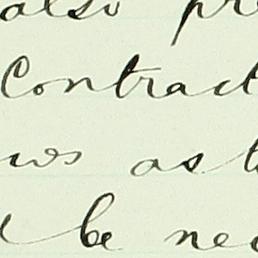 also pr
Contract
ws as t
be nec